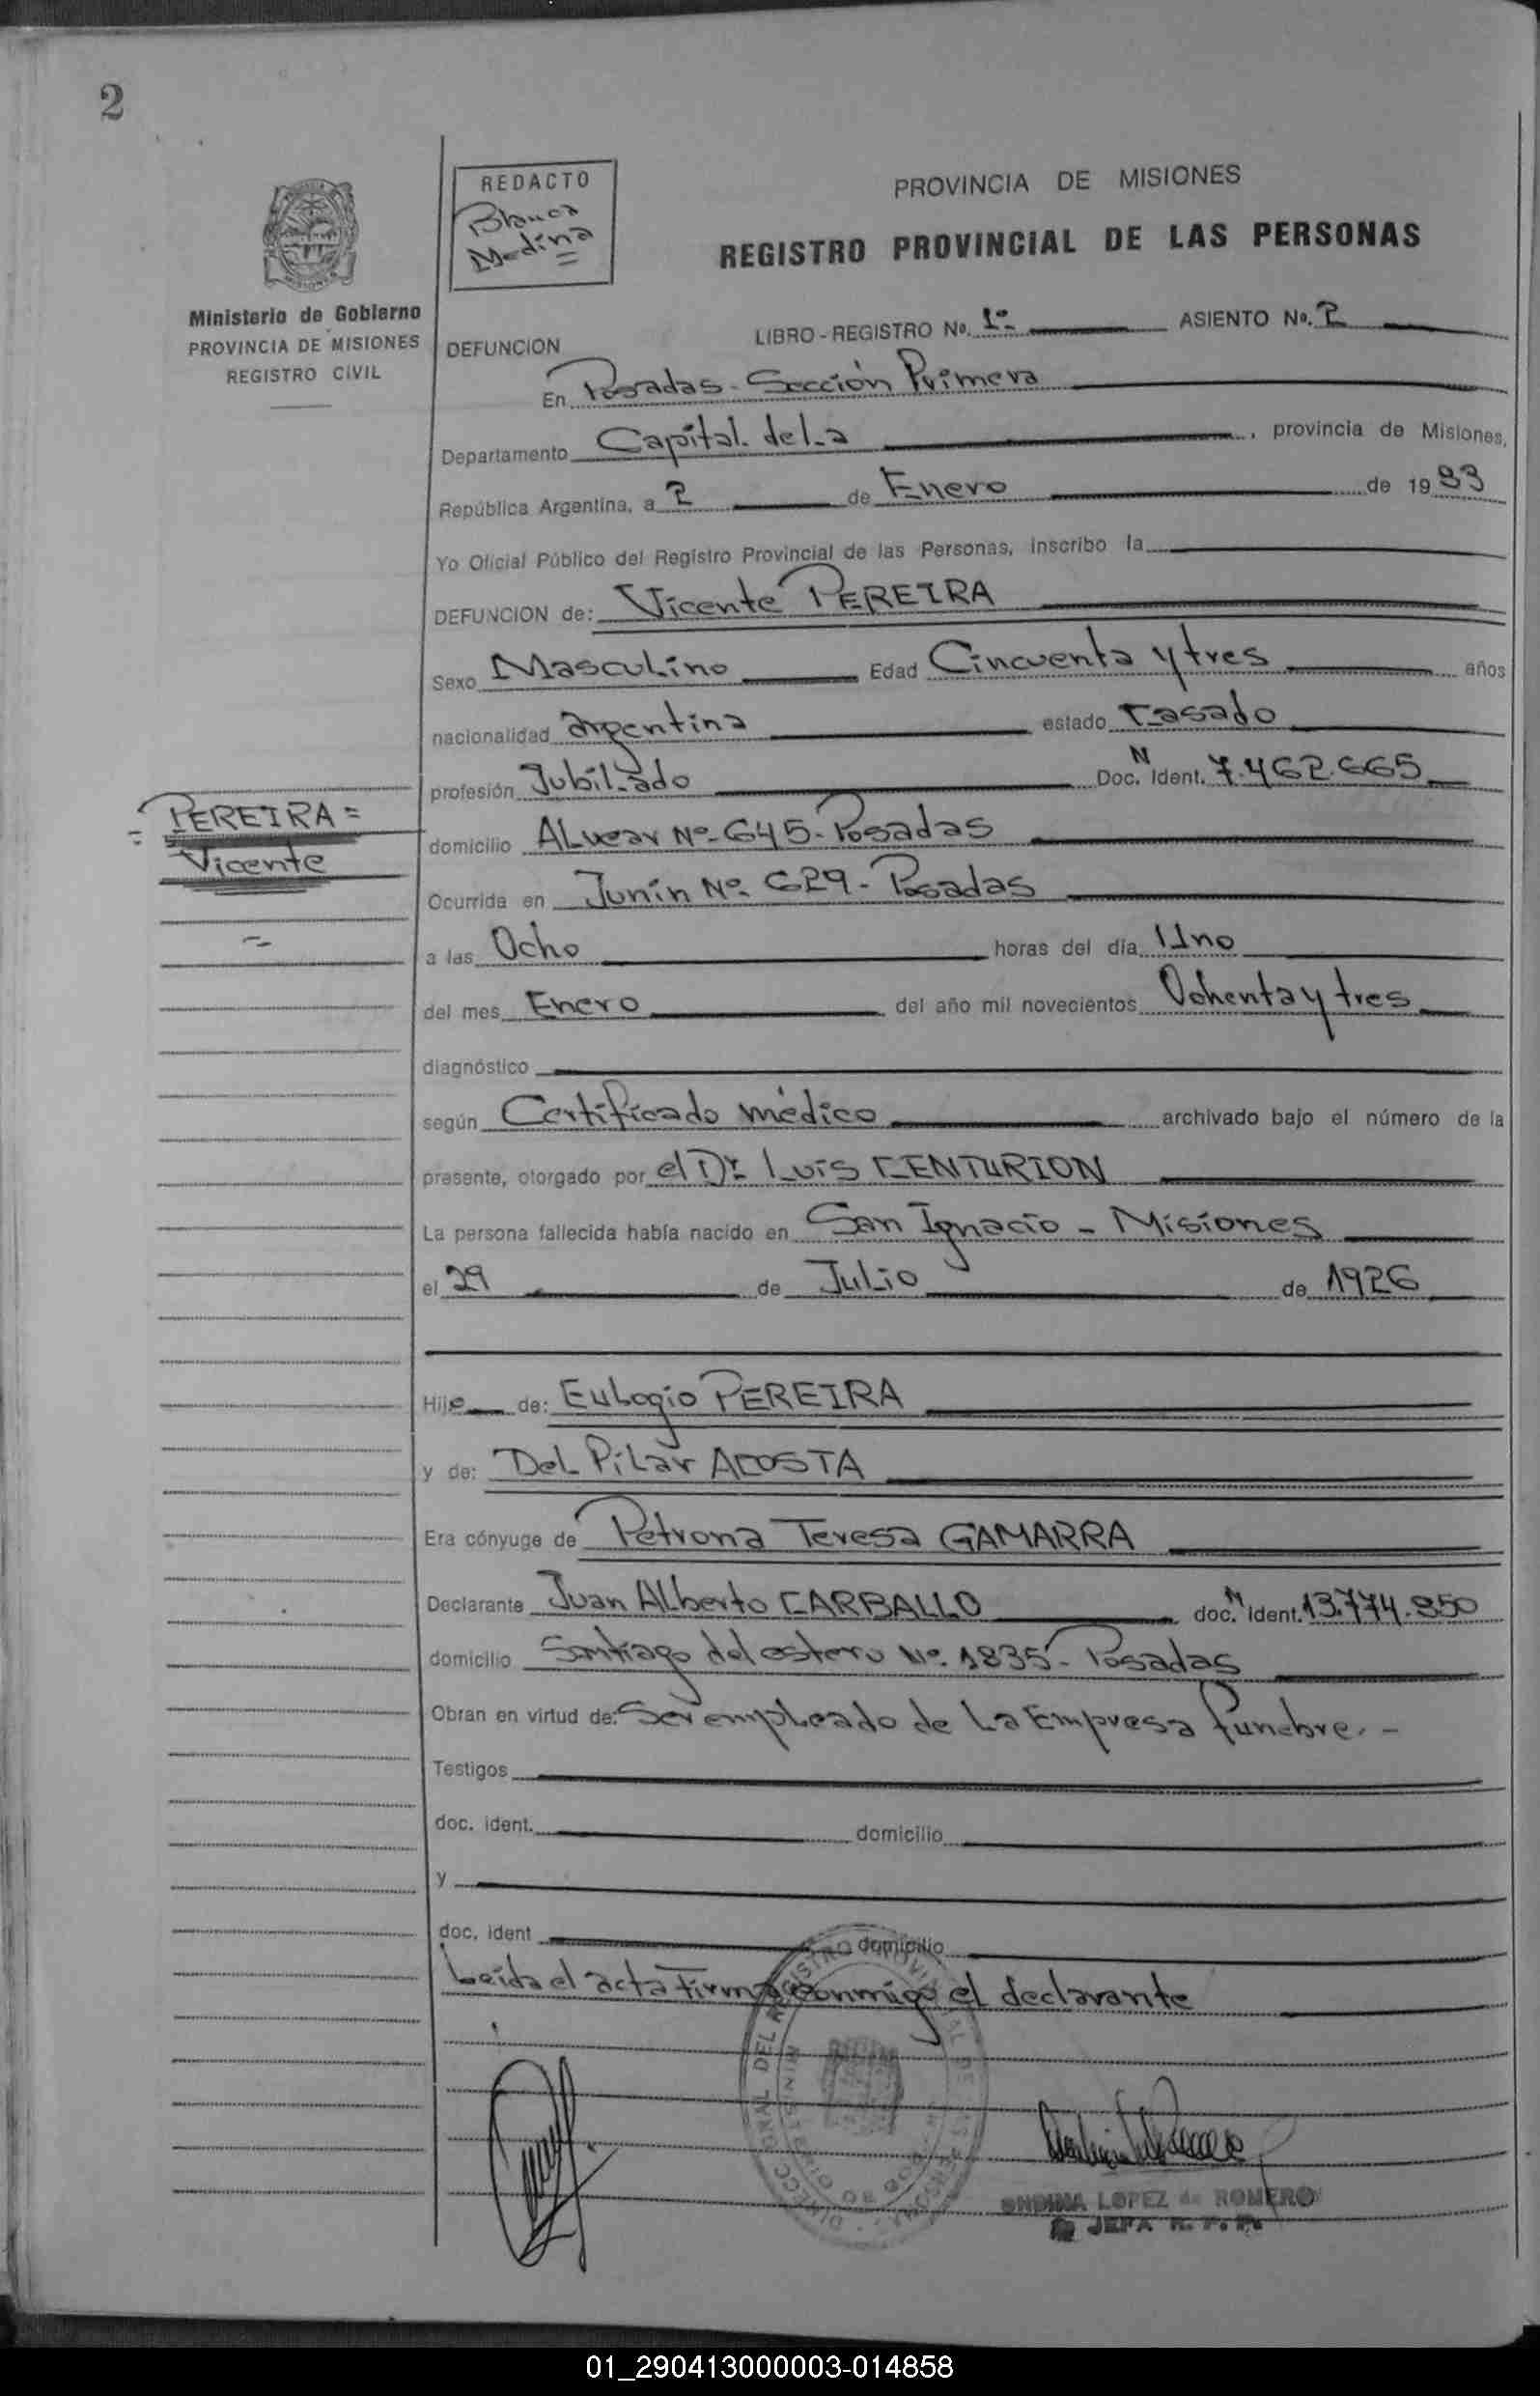 2
REDACTO
Blanca
Medina
PROVINCIA DE MISIONES
REGISTRO PROVINCIAL DE LAS PERSONAS
Ministerio de Gobierno
PROVINCIA DE MISIONES
REGISTRO CIVIL
LIBRO - REGISTRO No. 1º ASIENTO No. 2
DEFUNCION
En Posadas - Sección Primera
Departamento Capital de La , provincia de Misiones,
República Argentina, a 2 de Enero de 1983
Yo Oficial Público del Registro Provincial de las Personas, inscribo la
DEFUNCION de: Vicente PEREIRA
Sexo Masculino Edad Cincuenta y tres años
nacionalidad argentina estado Casado
profesión Jubilado Doc. N Ident. 7.462.665
PEREIRA =
= Vicente
domicilio ALvear Nº 645 - Posadas
Ocurrida en Junín Nº 629 - Posadas
a las Ocho horas del día Uno
del mes Enero del año mil novecientos Ochenta y tres
diagnóstico
según Certificado médico archivado bajo el número de la
presente, otorgado por el Dr Luis CENTURION
La persona fallecida había nacido en San Ignacio - Misiones
el 29 de Julio de 1926
Hijo de: Eulogio PEREIRA
y de: Del Pilar ACOSTA
Era cónyuge de Petrona Teresa GAMARRA
Declarante Juan Alberto CARBALLO doc. N ident. 13.774.850
domicilio Santiago del estero Nº 1835 - Posadas
Obran en virtud de: Ser empleado de La Empresa fúnebre. -
Testigos
doc. ident. domicilio
y
doc. ident domicilio
Leída el acta firma conmigo el declarante
ONDINA LOPEZ de ROMERO
JEFA R. P. P.
01_290413000003-014858